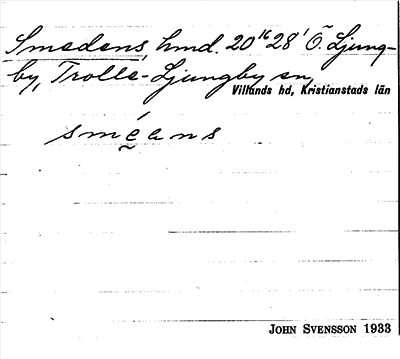 Smedens, hmd. 20¹⁶28' Ö. Ljung-
by, Trolle-Ljungby sn,
Villands hd, Kristianstads län
sméans
JOHN SVENSSON 1933